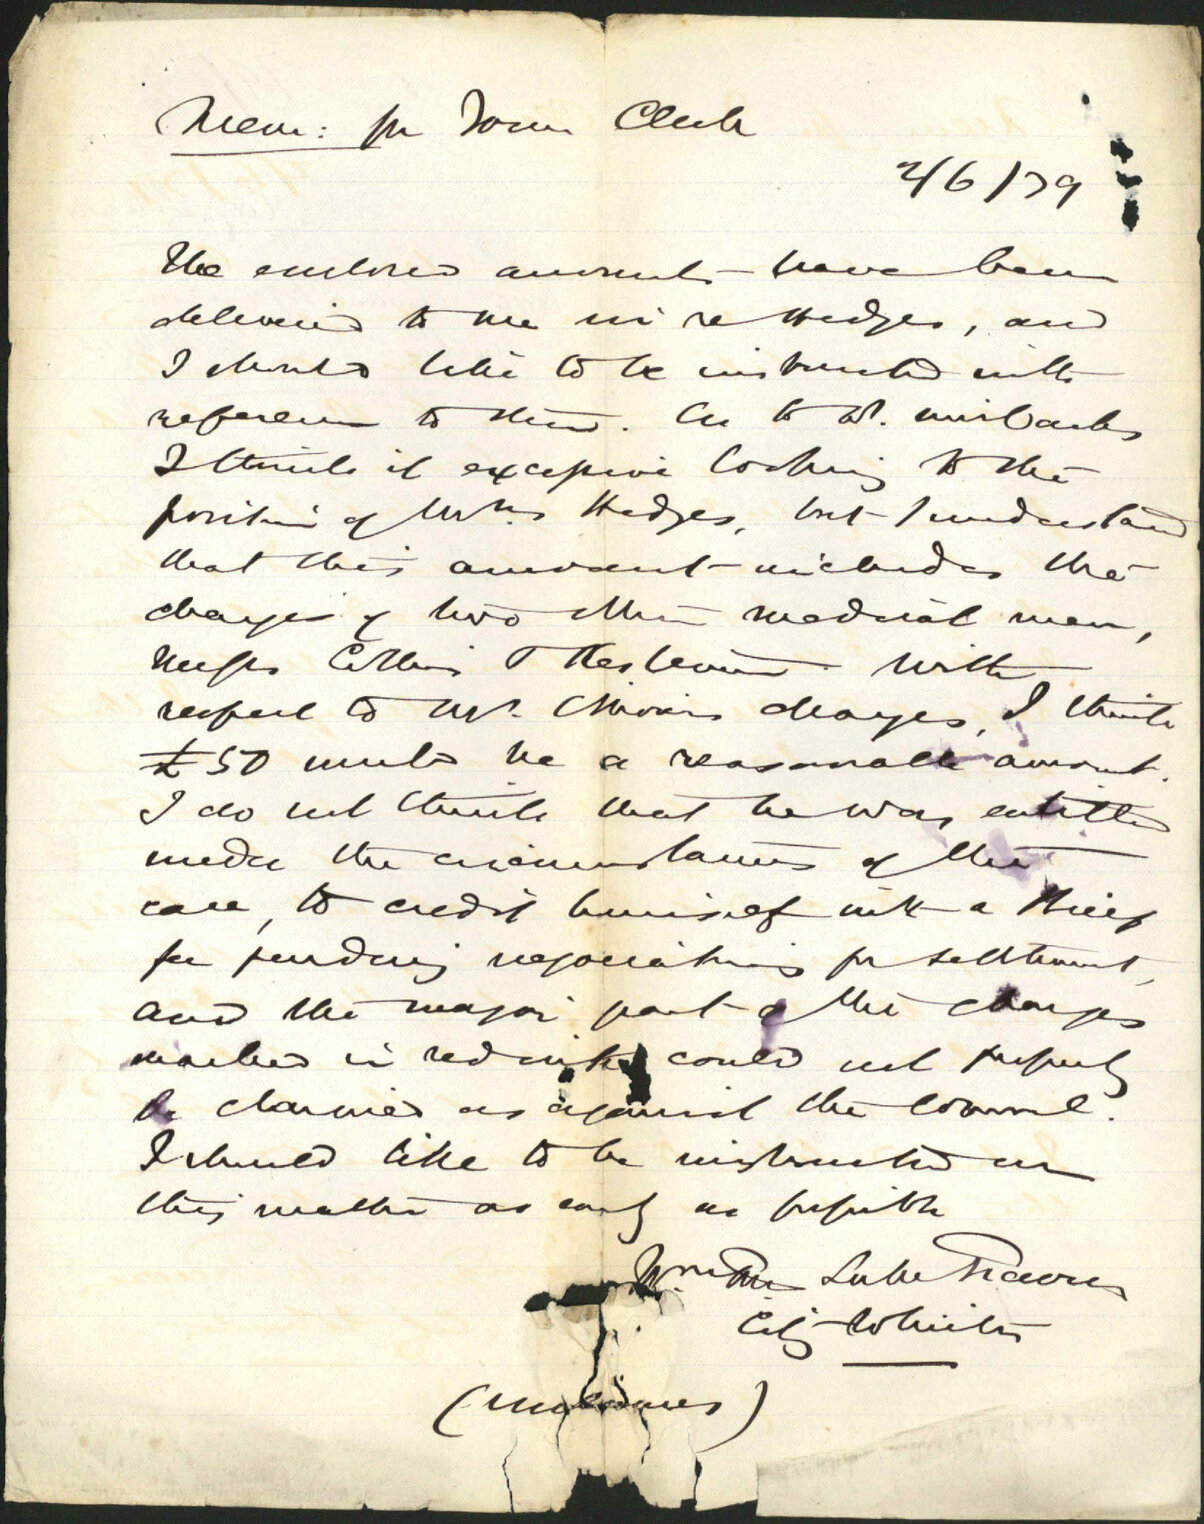 Mem: for Town Clerk
2/6/79
The enclosed accounts have been
delivered to me in re Hedges, and
I should like to be instructed with
reference to them. As to Dr.
I think it excessive looking to the
position of Mrs Hedges, but I understand
that this amount includes the
charges of two other medical men,
Messrs Collins &
respect to Mr. charges, I think
£50 would be a reasonable amount.
I do not think that he was entitled
under the circumstances of the
case, to credit himself with a
fee pending negociations for settlement,
and the major part of the charges
marked in red ink could not properly
be claimed as against the Council.
I should like to be instructed on
this matter as early as possible
Wm Thos Locke Travers
City Solicitor
(enclosures)